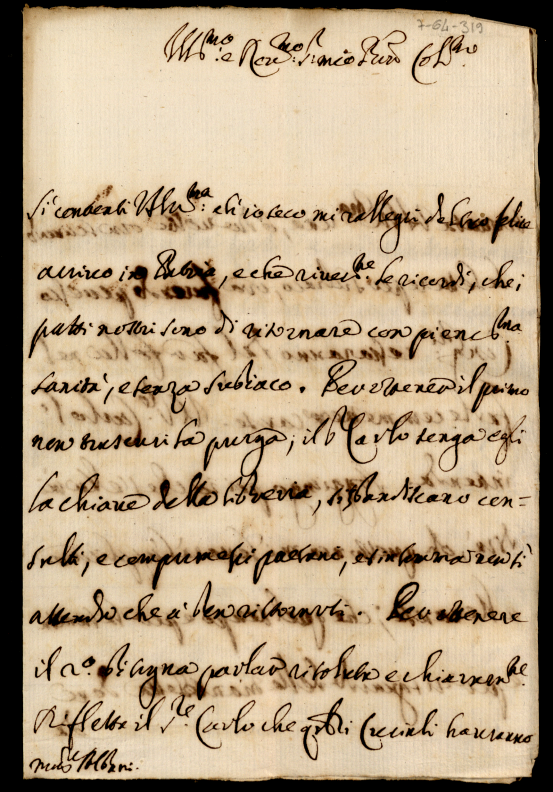 7-64-319
Ill:mo e Rev:mo S:r mio P̃ron Col:mo
Si contenti V.S. Ill:ma ch'io seco mi rallegri del suo felice
arrivo in Patria, e che river:te le ricordi, che i
patti nostri sono di ritornare con pieniss:ma
sanità, e senza Subiaco. Per ottenere il primo
non trascuri la purga, il S.r Carlo tenga egli
la chiave della libreria, si sbandiscano con=
sulti, e componimenti, e in somma non si
attenda che à ben ristorarsi. Per ottenere
il 2.o bisogna parlar risoluto e chiaramen:te
Rifletta il S.re Carlo che questi Cruciali havranno
Mons.r Albani.